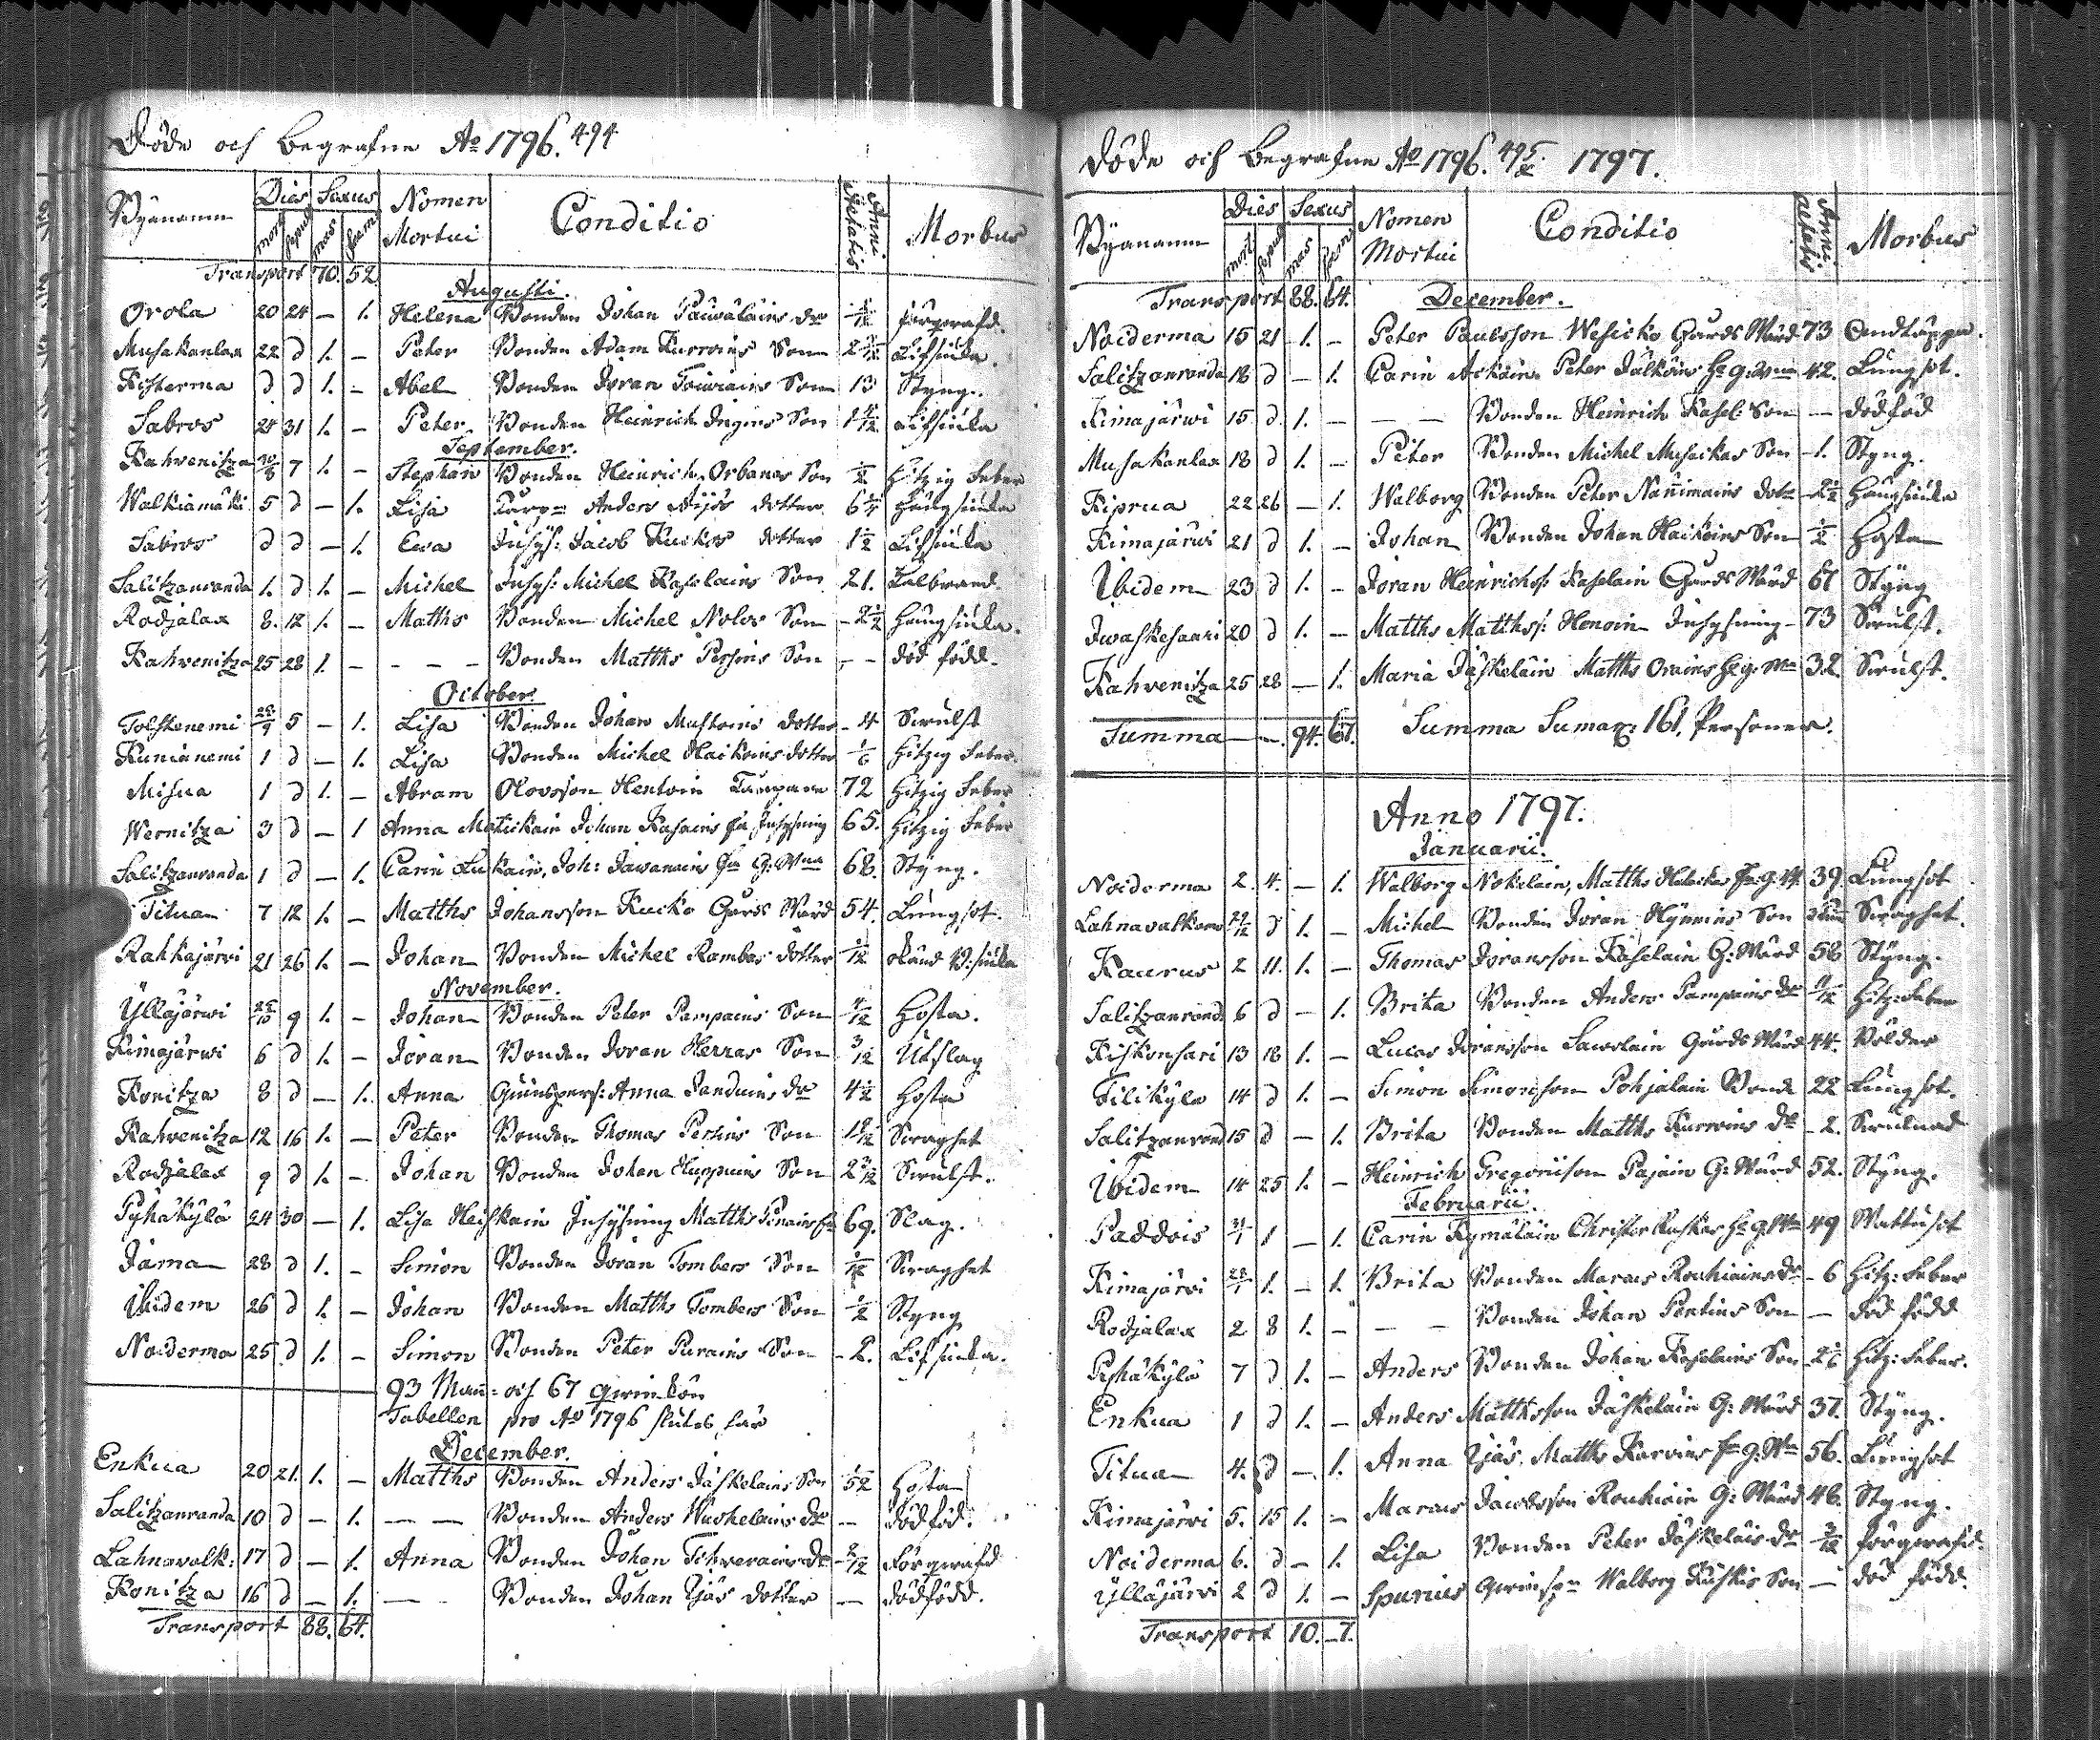 Döde och Begrafne Ao 1796. 494
Byanamn Dies Sexus Nomen Mortui Conditio Anni Aetatis Morbus
mort sepult mas foem
Transport 70. 52
Augusti.
Orola 20 24 – 1. Helena Bonden Johan Pauvalains dr
Musakanlax 22 d 1. – Peter Bonden Adam Kurvins Son Lifsiuka.
Kisterma d d 1. – Abel Bonden Joran Son 13 Styng.
Sabros 24 31 1. – Peter Bonden Heinrich Ingins Son Lifsiuka
September.
Kahvenitza 30/8 7 1. – Stephan Bonden Heinrich Orbanas Son 1/2 Hitzig Feber
Walkiamäki 5 d – 1. Lisa Anders Äijös dotter
Sabros d d – 1. Ewa Inhys: Jacob Kuckos dotter 1 1/2 Lifsiuka
Salitzanranda 1. d 1. – Michel Inhys: Michel Kaselains Son 21. Kalbrand.
Rodjalax 8. 12 1. – Matths Bonden Michel Nolos Son – 2 1/2
Kahvenitza 25 28 1. – – – – Bonden Matths Persins Son – – död född.
October
Tolskenemi 5 – 1. Lisa Bonden Johan dotter – 4 Swulst
Kunianemi 1 d – 1. Lisa Bonden Michel Haikoins dotter 1/6 Hitzig Feber.
Misua 1 d 1. – Abram Olovsson Hentoin 72 Hitzig Feber
Wernitza 3 d – 1 Anna Matickain Johan Kasains Inhysing 65. Hitzig Feber
Salitzanranda 1 d – 1. Carin Lukain, Joh: Jawanains 68. Styng.
Titua 7 12 1. – Matths Johansson Kucko Gards Wärd 54. Lungsot.
Rahkajärvi 21 26 1. – Johan Bonden Michel Rambas dotter 1/12
November.
Ylläjärwi 25/10 9 1. – Johan Bonden Peter Pampains Son 4/12 Hosta.
Kimajärwi 6 d 1. – Joran Bonden Joran Herras Son 3/12 Utslag
Konitza 8 d – 1. Anna Anna Janduins dr 4 1/2 Hosta
Kahvenitza 12 16 1. – Peter Bonden Thomas Persins Son Swaghet
Rodjalax 9 d 1. – Johan Bonden Johan Huppuins Son Swulst.
Pyhäkylä 24 30 – 1. Lisa Heiskain Inhysing Matths 69. Slag.
Jäma 28 d 1. – Simon Bonden Joran Tombers Son Swaghet
Ibidem 26 d 1. – Johan Bonden Matths Tombers Son 1/2 Styng
Noiderma 25 d 1. – Simon Bonden Peter Purains Son – 2. Lifsiuka.
93 Mann= och 67 qwinkön
Tabellen pro Ao 1796 slutes här
December.
Enkua 20 21. 1. – Matths Bonden Anders Jäskelains Son 1/52 Hosta
Salitzanranda 10 d – 1. – – Bonden Anders dr – dödföd.
Lahnavalk: 17 d – 1. Anna Bonden Johan Tihverains dr
Konitza 16 d – 1. – Bonden Johan Äjäs dotter – dödfödd.
Transport 88. 64.
Döde och Begrafne Ao 1796. 495. 1797.
Byanamn Dies Sexus Nomen Mortui Conditio Anni aetatis Morbus
mort sepult mas foem
Transport 88. 64.
December.
Noiderma 15 21 1. – Peter Paulsson Wesicko Gards Wärd 73 Andtäppa.
Salitzanranda 18 d – 1. Carin Ackoin Peter Jälköins 42. Lungsot.
Kimajärwi 15 d. 1. – – – Bonden Heinrich Kasel: Son – dödföd
Musakanlax 18 d 1. – Peter Bonden Michel Musackas Son – 1. Styng.
Kiprua 22 26 – 1. Walborg Bonden Peter Nannimains
Kimajärwi 21 d 1. – Johan Bonden Johan Haikoins Son 1/2 Hosta
Ibidem 23 d 1. – Joran Heinrichss: Kaselain Gards Wärd 67 Styng
Iwaskesaari 20 d 1. – Matths Matthss: Henoin Inhysing – 73 Swulst.
Kahvenitza 25 28 – 1. Maria Jäskelain Matths Orains 32 Swulst.
Summa – – 94. 67. Summa Sumar: 161 Personer.
Anno 1797.
Januarii.
Noiderma 2. 4. – 1. Walborg Nokelain, Matths 39. Lungsot
Lahnavalkam 29/12 d 1. – Michel Bonden Joran Hynnins Son Swaghet.
Kaurus 2 11. 1. – Thomas Joransson Kaselain G: Wärd 58 Styng.
Salitzanrand. 6 d – 1. Brita Bonden Anders Pampains dr Hitz: Feber
Kiskonsari 13 18 1. – Lucas Joransson Sawolain Gards Wärd 44. Bölder
Tilikylä 14 d 1. – Simon Simonsson Pohjalain Bonde 22 Lungsot.
Salitzanrand 15 d – 1. Brita Bonden Matths Kurvins dr – 2. Swulnad
Ibidem 14 25 1. – Heinrich Gregorisson Pajain G: Wärd 52. Styng.
Februarii.
Paddois 31/1 1 – 1. Carin Kymäläin Christer 49 Wattusot
Kimajärvi 28/1 1. – 1. Brita Bonden Marcus Rouhiains dr – 6 Hitz: Feber
Rodjalax 2 8 1. – – – Bonden Johan Pentins Son – död född
Pyhäkylä 7 d 1. – Anders Bonden Johan Kaselains Son 2 1/6 Hitz: Feber.
Enkua 1 d 1. – Anders Matthsson Jäskelain G: Wärd 37. Styng.
Titua 4. d – 1. Anna Äjäs, Matths Karvins 56. Lungsot
Kimajärwi 5. 15 1. – Marcus Jacobsson Rouhiain G: Wärd 46. Styng.
Noiderma 6. d – 1. Lisa Bonden Peter Jäskelais dr
Ylläjärvi 2 d 1. – Spurius Walborg Kuskis Son – död född.
Transport 10. – 7.